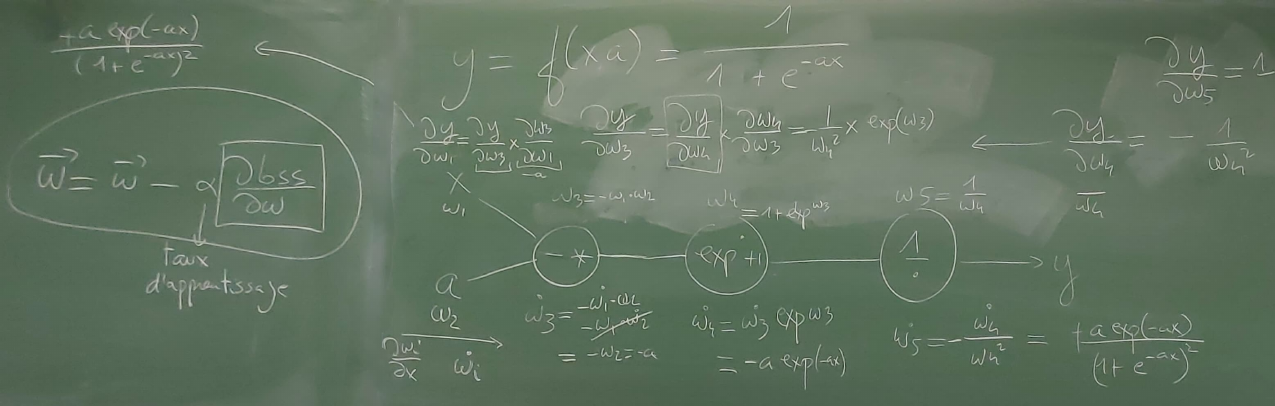 +a exp(-ax) / (1+e^{-ax})²
y = f(xa) = 1 / (1 + e^{-ax})
∂y/∂w5 = 1
w⃗ = w⃗ - α ∂loss/∂w
taux
d'apprentissage
∂y/∂w1 = ∂y/∂w3 × ∂w3/∂w1
-a
∂y/∂w3 = ∂y/∂w4 × ∂w4/∂w3 = 1/w4² × exp(w3)
∂y/∂w4 = - 1/w4²
w4
x
w1
w3 = -w1·w2
w4 = 1+exp^{w3}
w5 = 1/w4
- *
exp +1
1/·
y
a
w2
∂wi/∂x ẇi
ẇ3 = -ẇ1·w2
-w1·ẇ2
= -w2 = -a
ẇ4 = ẇ3 exp w3
= -a exp(-ax)
ẇ5 = - ẇ4/w4² = +a exp(-ax) / (1+e^{-ax})²